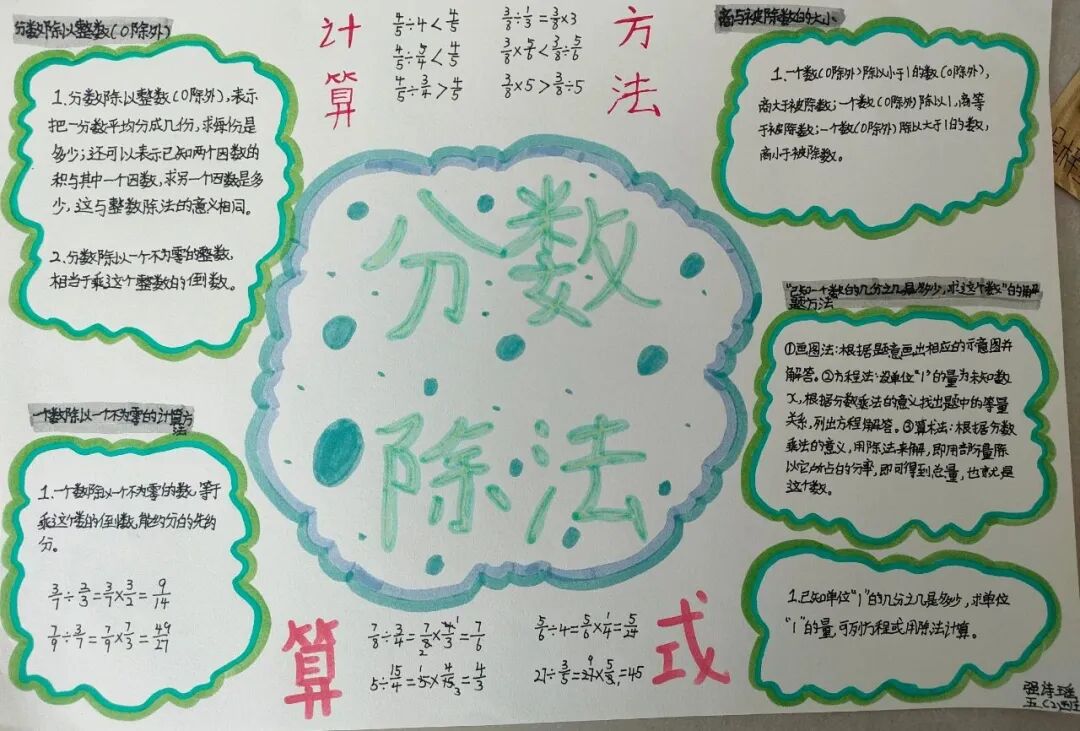 分数除以整数(0除外)
1.分数除以整数(0除外),表示
把一分数平均分成几份,求每份是
多少;还可以表示已知两个因数的
积与其中一个因数,求另一个因数是多
少,这与整数除法的意义相同。
2.分数除以一个不为零的整数,
相当于乘这个整数的倒数。
计算
方法
4/5÷4<4/5
4/5÷5/4<4/5
4/5÷3/4>4/5
3/8÷1/3=3/8×3
3/8×5/6<3/8÷5/6
3/8×5>3/8÷5
商与被除数的大小
1.一个数(0除外)除以小于1的数(0除外),
商大于被除数;一个数(0除外)除以1,商等
于被除数;一个数(0除外)除以大于1的数,
商小于被除数。
分数
除法
"已知一个数的几分之几是多少,求这个数"的解
题方法
①画图法:根据题意画出相应的示意图并
解答。②方程法:设单位"1"的量为未知数
x,根据分数乘法的意义找出题中的等量
关系,列出方程解答。③算术法:根据分数
乘法的意义,用除法来解,即用部分量除
以它所占的分率,即可得到总量,也就是
这个数。
一个数除以一个不为零的计算方
法
1.一个数除以一个不为零的数,等于
乘这个数的倒数,能约分的先约
分。
3/7÷2/3=3/7×3/2=9/14
7/9÷3/7=7/9×7/3=49/27
算
式
7/8÷3/4=7/8×4/3=7/6
5÷15/4=5×4/15=4/3
5/6÷4=5/6×1/4=5/24
27÷3/5=27×5/3=45
1.已知单位"1"的几分之几是多少,求单位
"1"的量,可列方程或用除法计算。
五(2)班